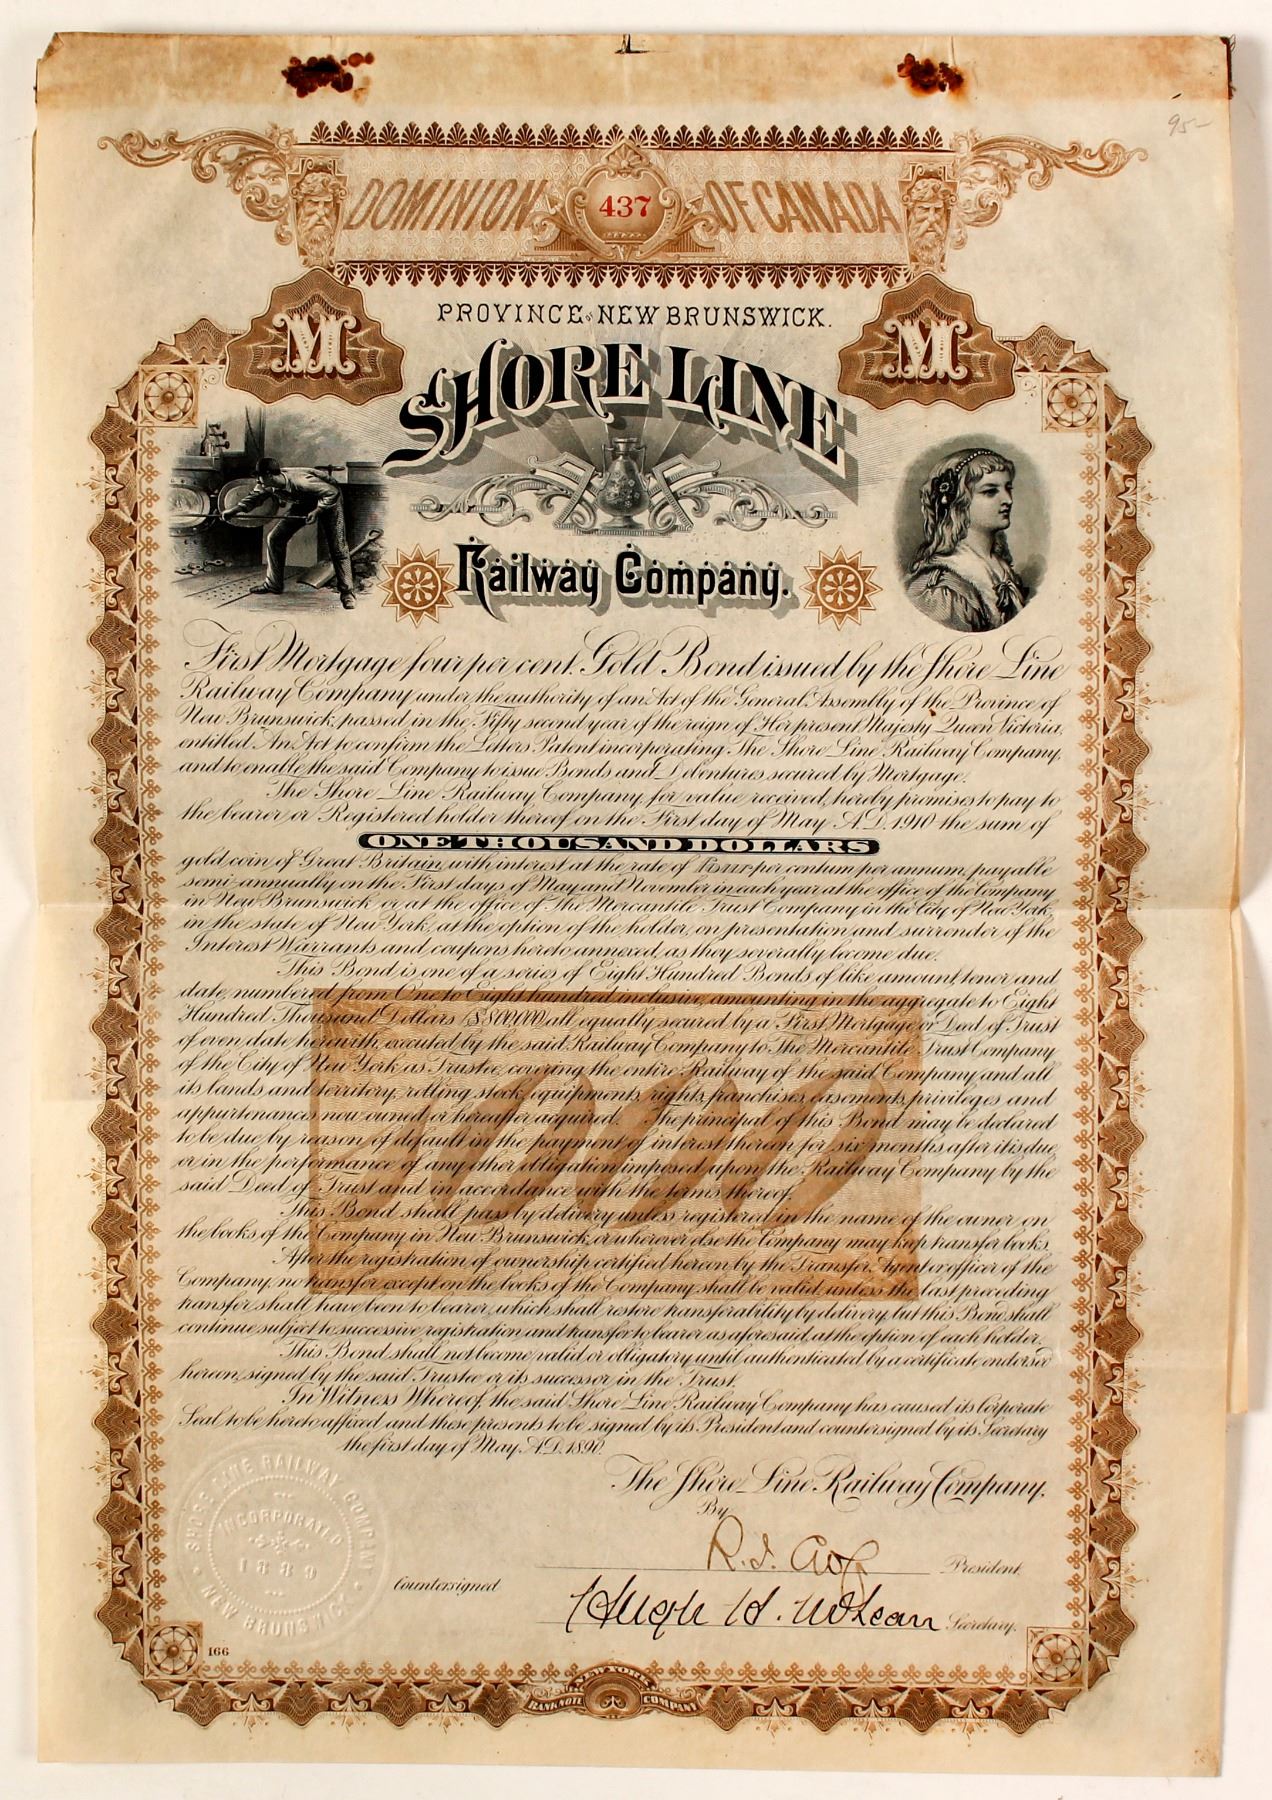 95-
DOMINION 437 OF CANADA
PROVINCE OF NEW BRUNSWICK.
M M
SHORE LINE
Railway Company.
First Mortgage four per cent. Gold Bond issued by the Shore Line
Railway Company under the authority of an Act of the General Assembly of the Province of
New Brunswick, passed in the Fifty second year of the reign of Her present Majesty Queen Victoria,
entitled An Act to confirm the Letters Patent incorporating The Shore Line Railway Company,
and to enable the said Company to issue Bonds and Debentures secured by Mortgage.
The Shore Line Railway Company, for value received, hereby promises to pay to
the bearer or Registered holder thereof on the First day of May A.D. 1910 the sum of
ONE THOUSAND DOLLARS
gold coin of Great Britain, with interest at the rate of Four per centum per annum, payable
semi-annually on the First days of May and November in each year at the office of the Company
in New Brunswick or at the office of The Mercantile Trust Company in the City of New York,
in the state of New York, at the option of the holder, on presentation and surrender of the
Interest Warrants and coupons hereto annexed, as they severally become due.
This Bond is one of a series of Eight Hundred Bonds of like amount, tenor and
date, numbered from One to Eight hundred inclusive, amounting in the aggregate to Eight
Hundred Thousand Dollars ($800,000) all equally secured by a First Mortgage or Deed of Trust
of even date herewith, executed by the said Railway Company to The Mercantile Trust Company
of the City of New York as Trustee, covering the entire Railway of the said Company and all
its lands and territory, rolling stock, equipments, rights, franchises, easements, privileges and
appurtenances now owned or hereafter acquired. The principal of this Bond may be declared
to be due by reason of default in the payment of interest thereon for six months after it is due,
or in the performance of any other obligation imposed upon the Railway Company by the
said Deed of Trust and in accordance with the terms thereof.
This Bond shall pass by delivery unless registered in the name of the owner on
the books of the Company in New Brunswick, or wherever else the Company may keep transfer books.
After the registration of ownership certified hereon by the Transfer Agent or officer of the
Company, no transfer except on the books of the Company shall be valid unless the last preceding
transfer shall have been to bearer, which shall restore transferability by delivery, but this Bond shall
continue subject to successive registration and transfer to bearer as aforesaid, at the option of each holder.
This Bond shall not become valid or obligatory until authenticated by a certificate endorsed
hereon, signed by the said Trustee or its successor in the Trust.
In Witness Whereof, the said Shore Line Railway Company has caused its Corporate
Seal to be hereto affixed and these presents to be signed by its President and countersigned by its Secretary
the first day of May, A.D. 1890.
The Shore Line Railway Company,
By
President
Countersigned
Hugh H. McLean Secretary.
SHORE LINE RAILWAY COMPANY
INCORPORATED
1889
NEW BRUNSWICK
166
NEW YORK
BANK NOTE COMPANY